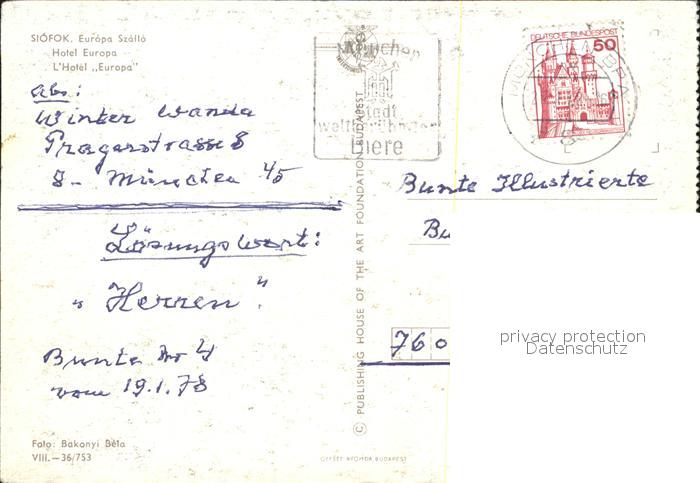 SIÓFOK. Európa Szálló
Hotel Europa
L'Hotel „Europa"
Abs:
Winter Wanda
Pragerstrasse 8
8- München 45
Lösungswort:
„Herren".
Bunte No 4
vom 19.1.78
Foto: Bakonyi Béla
VIII.—36/753
© PUBLISHING HOUSE OF THE ART FOUNDATION BUDAPEST
OFFSET NYOMDA BUDAPEST
München
Stadt
weltberühmter
Biere
DEUTSCHE BUNDESPOST
50
MÜNCHEN
Bunte Illustrierte
Bu
760
privacy protection
Datenschutz